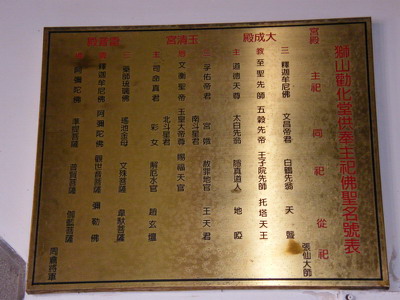 獅山勸化堂供奉主祀佛聖名號表
宮殿 主祀 同祀 從祀
張仙大師
大成殿
三 釋迦牟尼佛 文昌帝君 白鶴先翁 天聾
教 至聖先師 五穀先帝 王子院先師 托塔天王
主 道德天尊 太白先翁 隨真道人 地啞
玉清宮
三 孚佑帝君 宮娥 赦罪地官 王天君
南斗星君
文衡聖帝 玉皇大帝尊 賜福天官
北斗星君
主 司命真君 彩女 解厄水官 趙玄壇
雷音殿
藥師琉璃佛 瑤池金母 文殊菩薩 韋馱菩薩
釋迦牟尼佛 阿彌陀佛 觀世音菩薩 彌勒佛
阿彌陀佛 準提菩薩 普賢菩薩 伽藍菩薩
周倉將軍